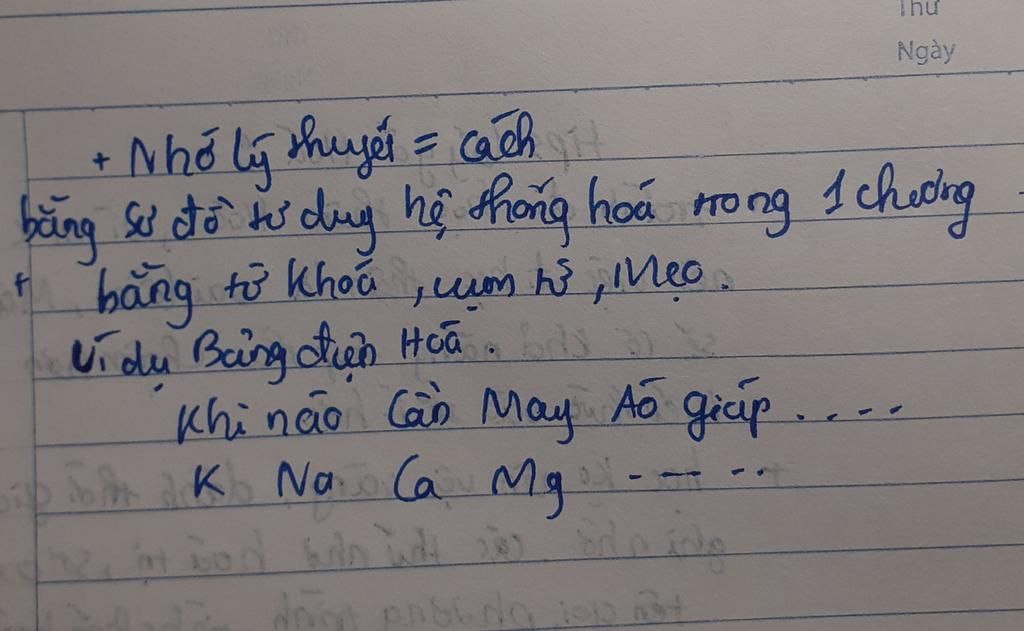 Thứ
Ngày
+ Nhớ lý thuyết = cách
bằng sơ đồ tư duy hệ thống hoá trong 1 chương
+ bằng từ khoá, cụm từ, Mẹo.
Ví dụ Bảng điện Hoá.
Khi nào Cần May Áo giáp....
K Na Ca Mg -----